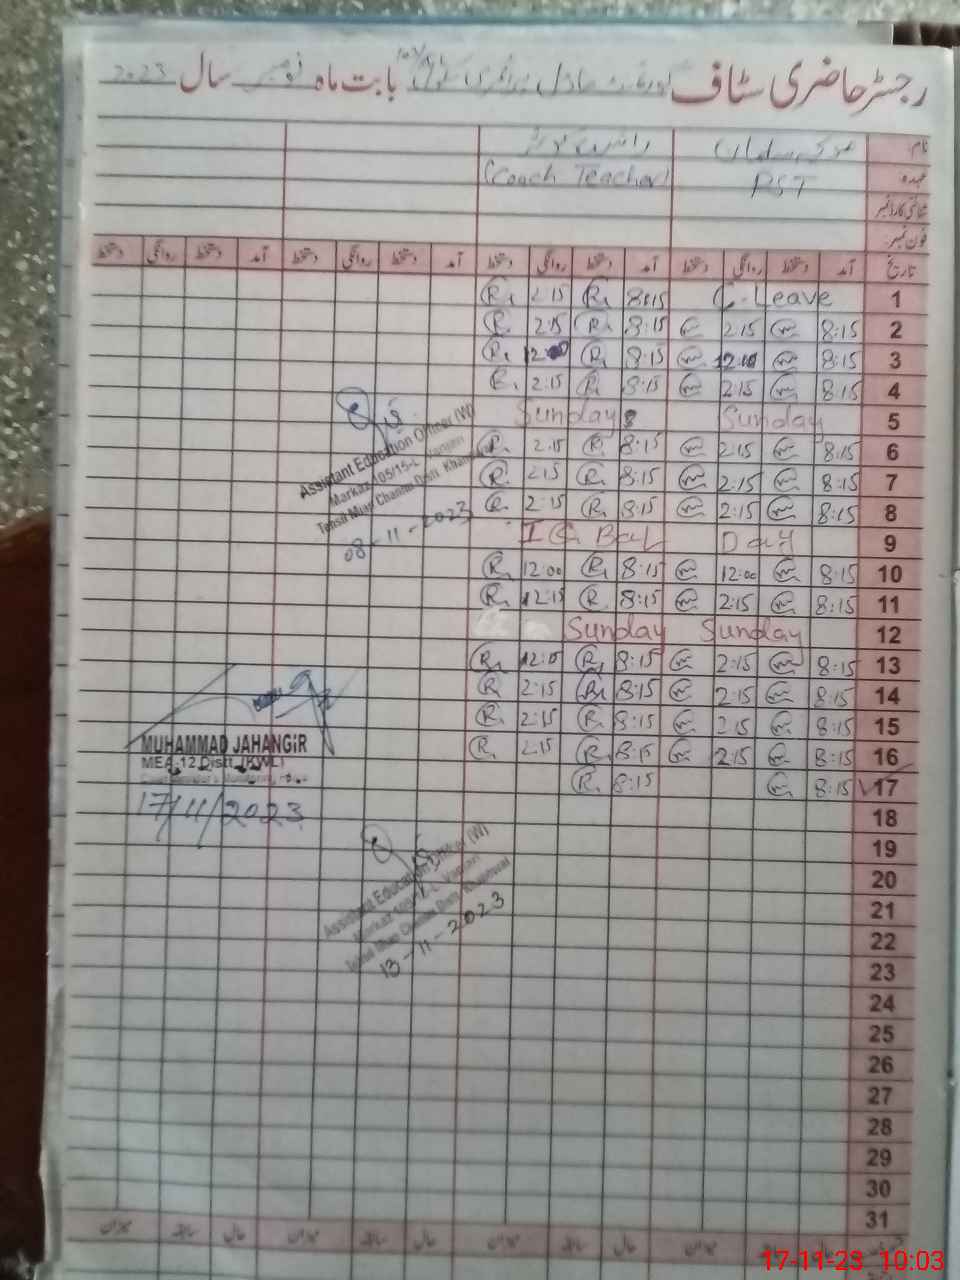 رجسٹر حاضری سٹاف گورنمنٹ ماڈل پرائمری سکول بابت ماہ نومبر سال 2023
نام
عہدہ PST (Coach Teacher)
شناختی کارڈ نمبر
فون نمبر
تاریخ آمد دستخط روانگی دستخط آمد دستخط روانگی دستخط آمد دستخط روانگی دستخط آمد دستخط روانگی دستخط
1 C. Leave 8:15 R. 2:15 R.
2 8:15 2:15 8:15 R. 2:15 R.
3 8:15 8:15 R. R.
4 8:15 2:15 8:15 R. 2:15 R.
5 Sunday Sunday
6 8:15 2:15 8:15 R. 2:15 R.
7 8:15 2:15 8:15 R. 2:15 R.
8 8:15 2:15 8:15 R. 2:15 R.
9 IQBaL Day
10 8:15 12:00 8:15 R. 12:00 R.
11 8:15 2:15 8:15 R. 12:15 R.
12 Sunday Sunday
13 8:15 2:15 8:15 R. R.
14 8:15 2:15 8:15 R. 2:15 R.
15 8:15 2:15 8:15 R. 2:15 R.
16 8:15 2:15 8:15 R. 2:15 R.
17 8:15 8:15 R.
18
19
20
21
22
23
24
25
26
27
28
29
30
31
Assistant Education Officer (W)
Markaz 105/15-L
Tehsil Mian Channu Distt. Khanewal
08-11-2023
MUHAMMAD JAHANGIR
MEA-12 Distt. (KWL)
17/11/2023
Assistant Education Officer (W)
Markaz 105/15-L
Tehsil Mian Channu Distt. Khanewal
13-11-2023
میزان سابقہ حال میزان سابقہ حال میزان سابقہ حال میزان سابقہ حال
17-11-23 10:03